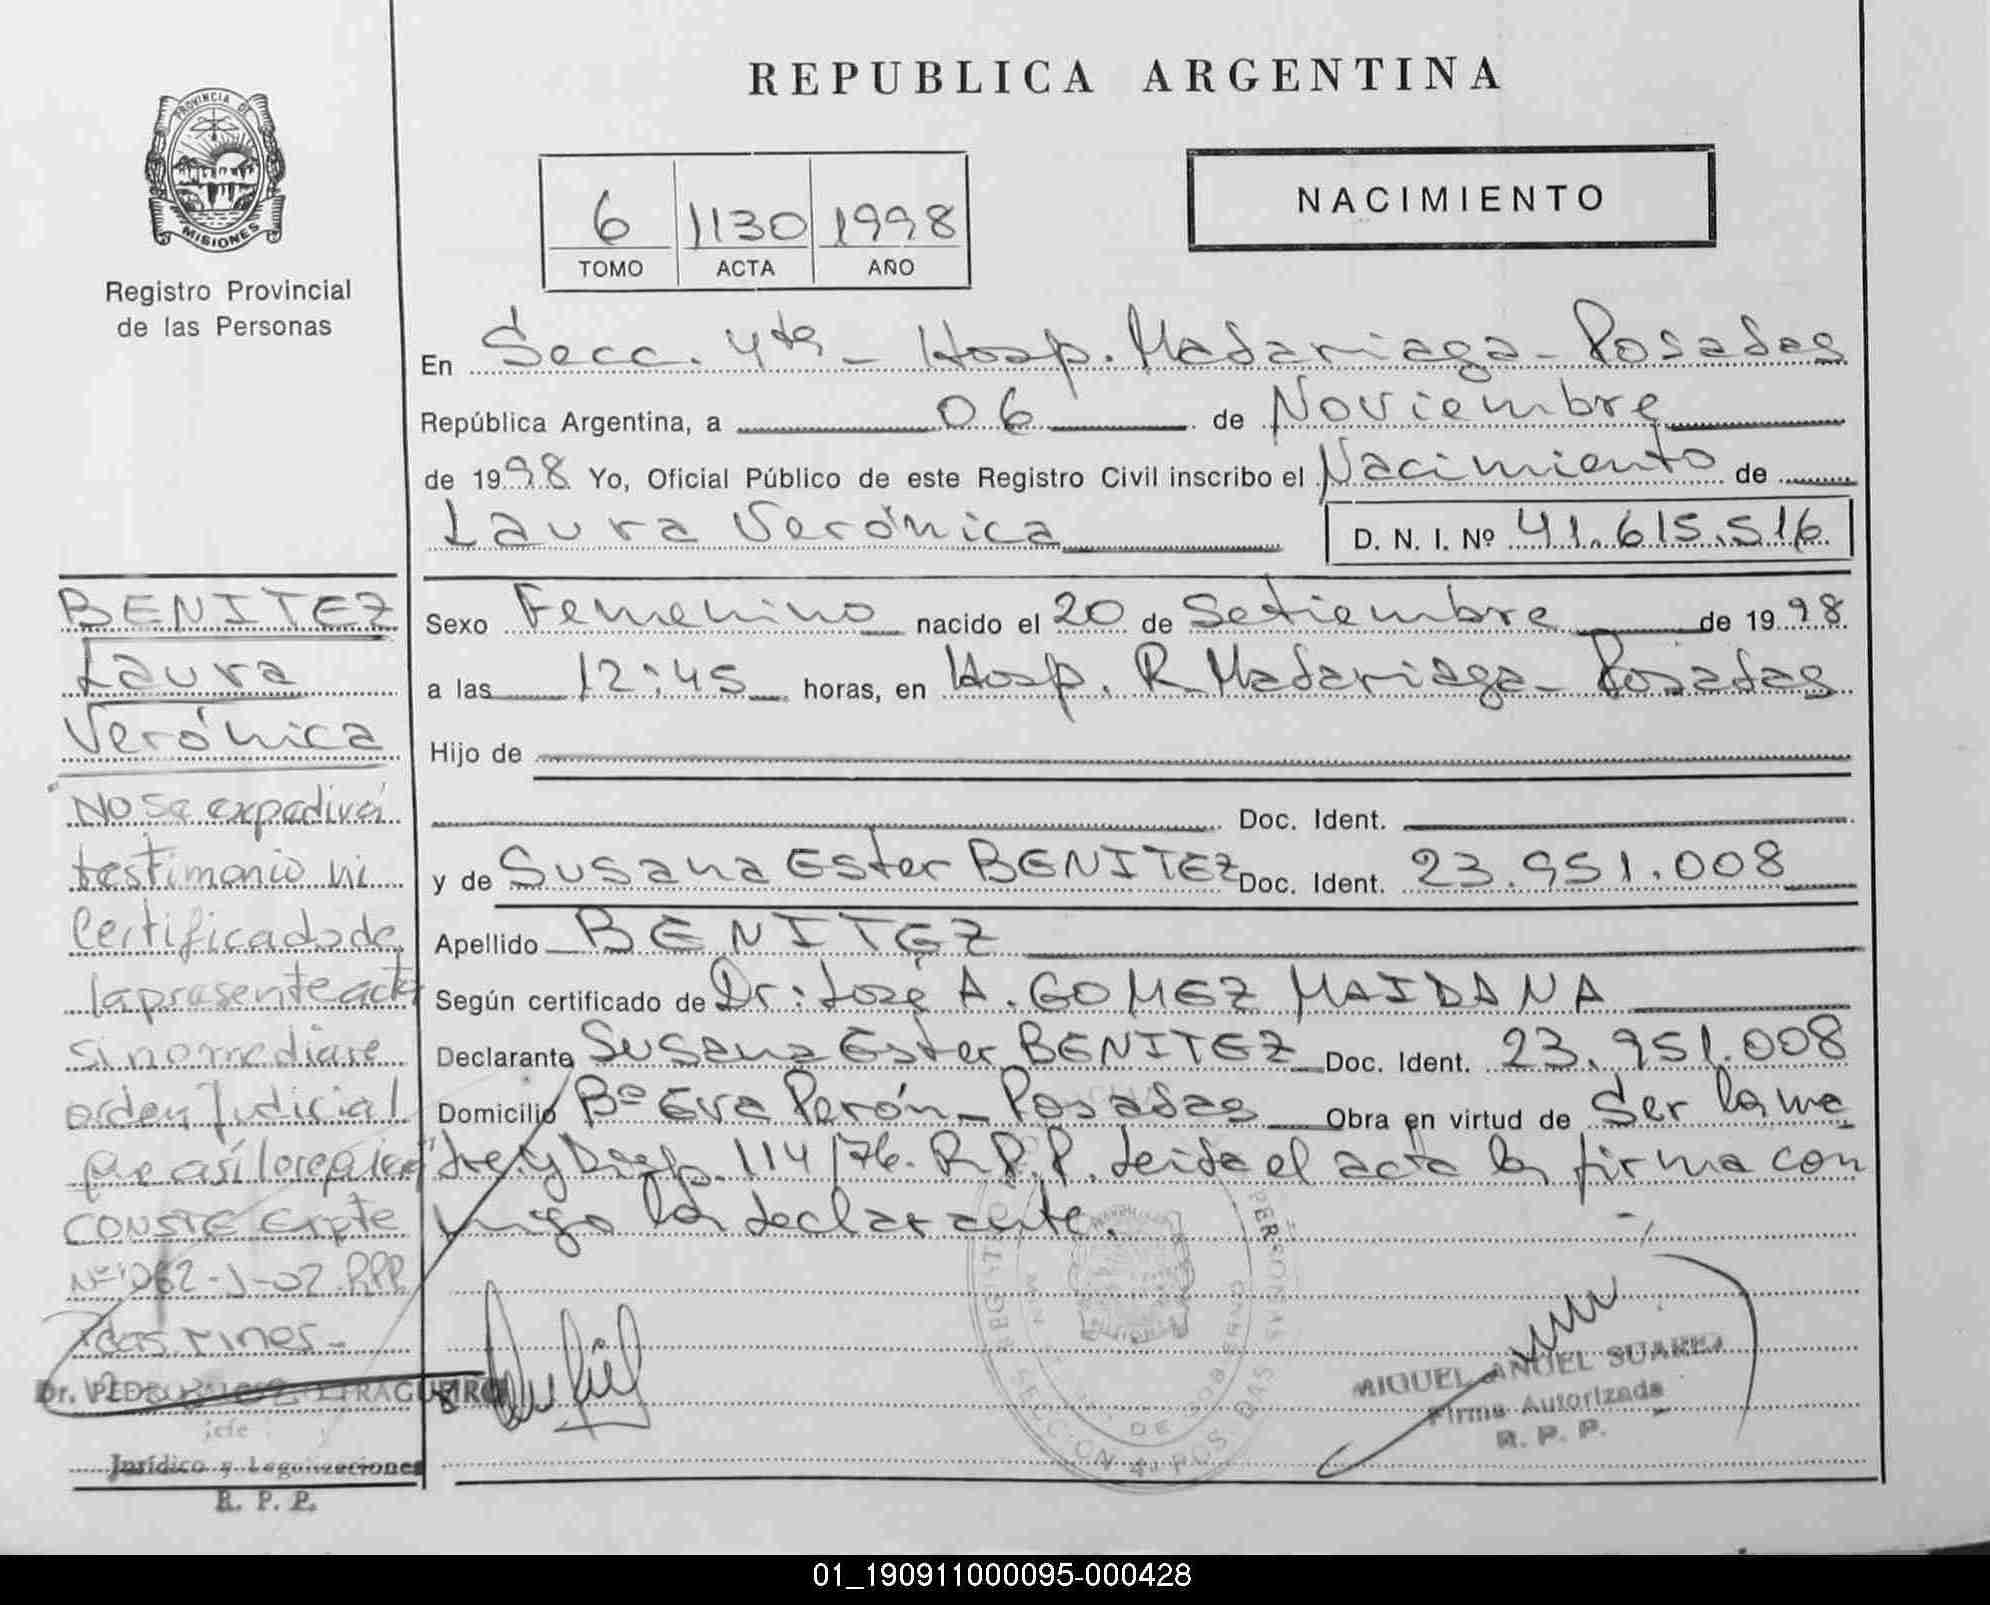 REPUBLICA ARGENTINA
PROVINCIA DE
MISIONES
Registro Provincial
de las Personas
6 1130 1998
TOMO ACTA AÑO
NACIMIENTO
En Secc. 4ta - Hosp. Madariaga - Posadas
República Argentina, a 06 de Noviembre
de 1998 Yo, Oficial Público de este Registro Civil inscribo el Nacimiento de
Laura Verónica D. N. I. Nº 41.615.516
Sexo Femenino nacido el 20 de Setiembre de 1998
a las 12:45 horas, en Hosp. R. Madariaga - Posadas
Hijo de
Doc. Ident.
y de Susana Ester BENITEZ Doc. Ident. 23.951.008
Apellido BENITEZ
Según certificado de Dr: José A. GOMEZ MAIDANA
Declarante Susana Ester BENITEZ Doc. Ident. 23.951.008
Domicilio Bº Eva Perón - Posadas Obra en virtud de Ser la ma
dre y Disp. 114/76. R.P.P. Leida el acta la firma con
migo la declarante.
BENITEZ
Laura
Verónica
No se expedirá
testimonio ni
Certificado de
la presente acta
si no mediare
orden Judicial
que así lo requiera
CONSTE Expte
R.P.P.
Dr. PEDRO FRAGUEIRO
Jefe
Jurídico y Legalizaciones
R. P. P.
REGISTRO PERSONAS
DE GOBIERNO
SECCION 4a POSADAS
MIGUEL ANGEL SUAREZ
Firma Autorizada
R. P. P.
01_190911000095-000428